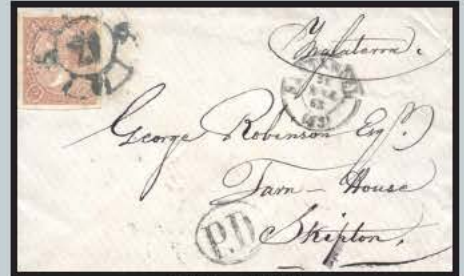 Inglaterra.
George Robinson Esqr.
Tarn - House
P.D
Skipton.